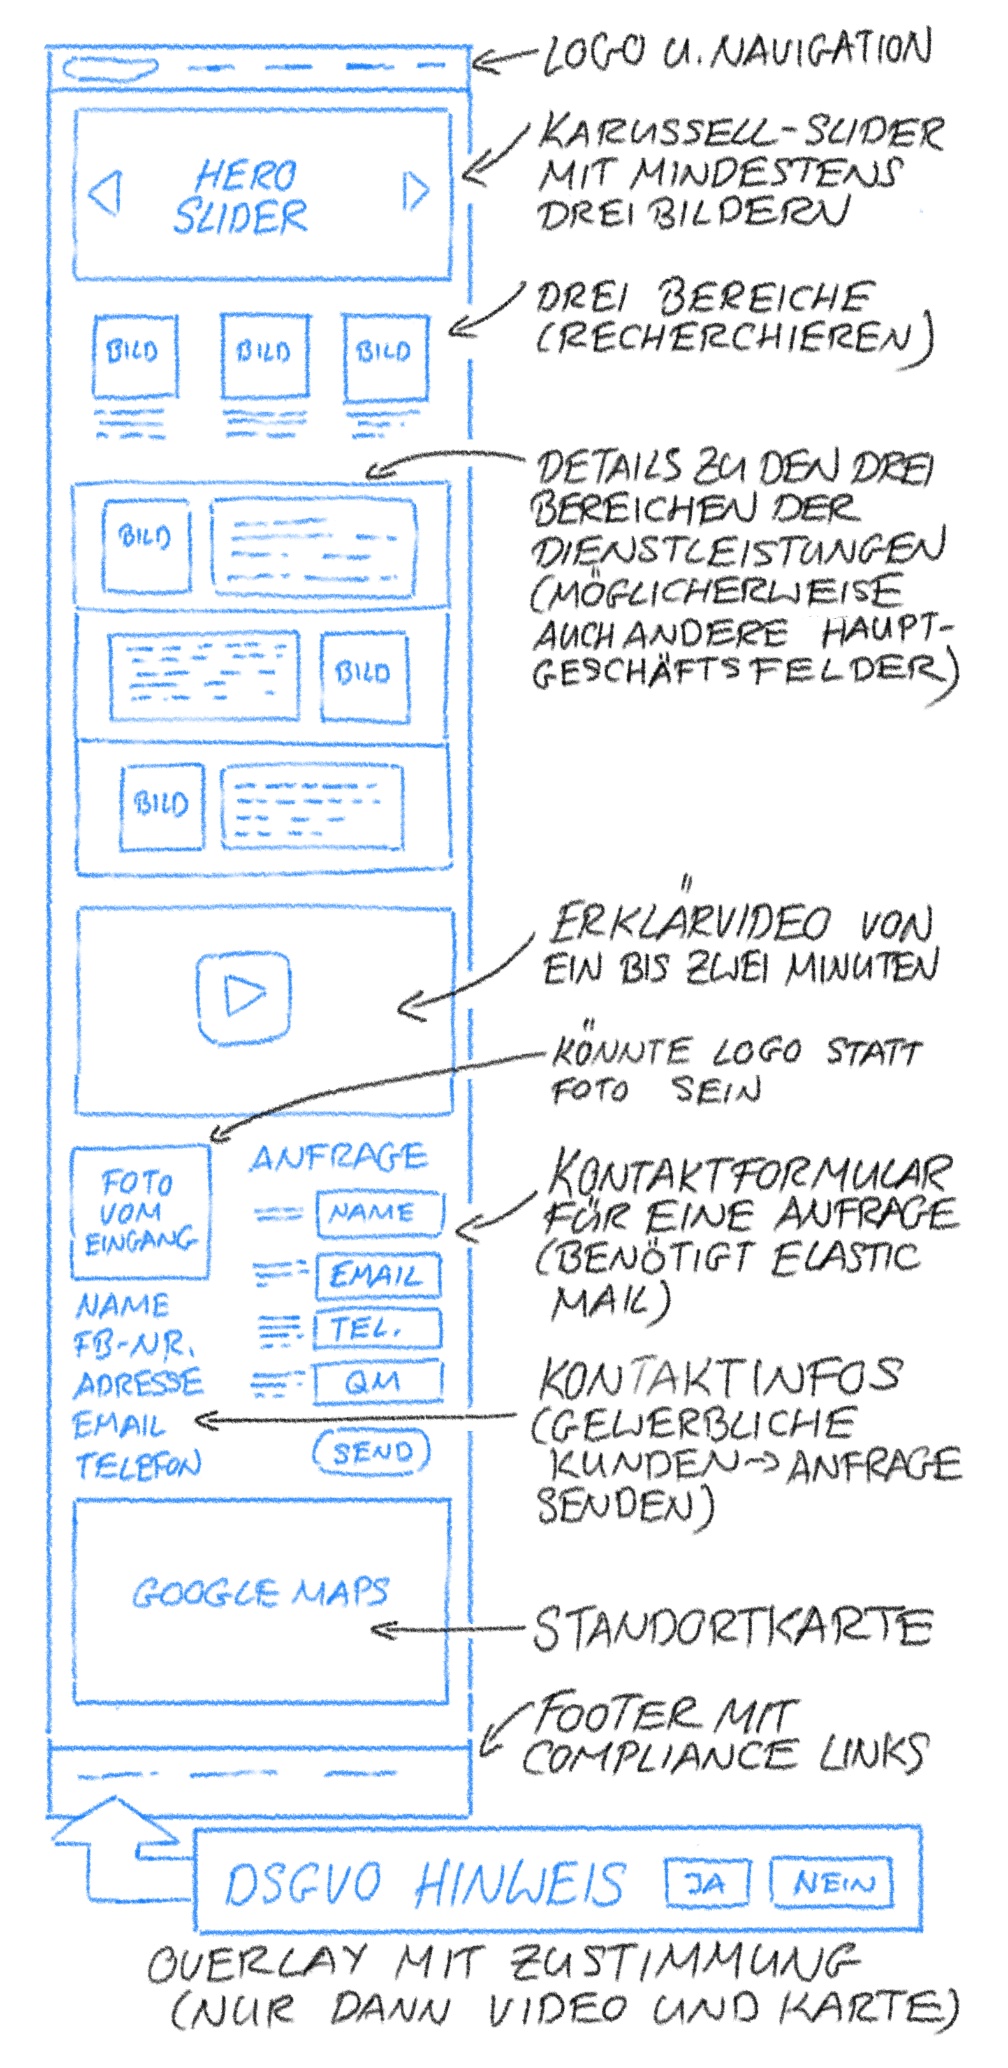 LOGO U. NAVIGATION
HERO
SLIDER
KARUSSELL-SLIDER
MIT MINDESTENS
DREI BILDERN
BILD
BILD
BILD
DREI BEREICHE
(RECHERCHIEREN)
DETAILS ZU DEN DREI
BEREICHEN DER
DIENSTLEISTUNGEN
(MÖGLICHERWEISE
AUCH ANDERE HAUPT-
GESCHÄFTSFELDER)
BILD
BILD
BILD
ERKLÄRVIDEO VON
EIN BIS ZWEI MINUTEN
KÖNNTE LOGO STATT
FOTO SEIN
FOTO
VOM
EINGANG
NAME
FB-NR.
ADRESSE
EMAIL
TELEFON
ANFRAGE
NAME
EMAIL
TEL.
QM
SEND
KONTAKTFORMULAR
FÜR EINE ANFRAGE
(BENÖTIGT ELASTIC
MAIL)
KONTAKTINFOS
(GEWERBLICHE
KUNDEN→ANFRAGE
SENDEN)
GOOGLE MAPS
STANDORTKARTE
FOOTER MIT
COMPLIANCE LINKS
DSGVO HINWEIS JA NEIN
OVERLAY MIT ZUSTIMMUNG
(NUR DANN VIDEO UND KARTE)